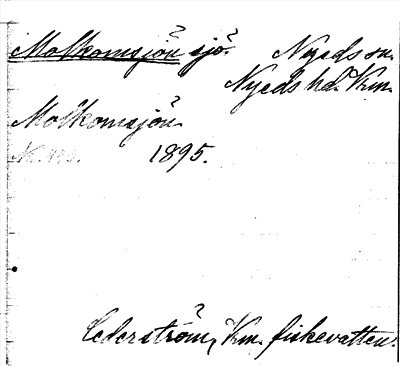 Molkomsjön sjö. Nyeds sn.
Nyeds hd. Krm.
Molkomsjön.
1895.
Cederström, Krm. fiskevatten.